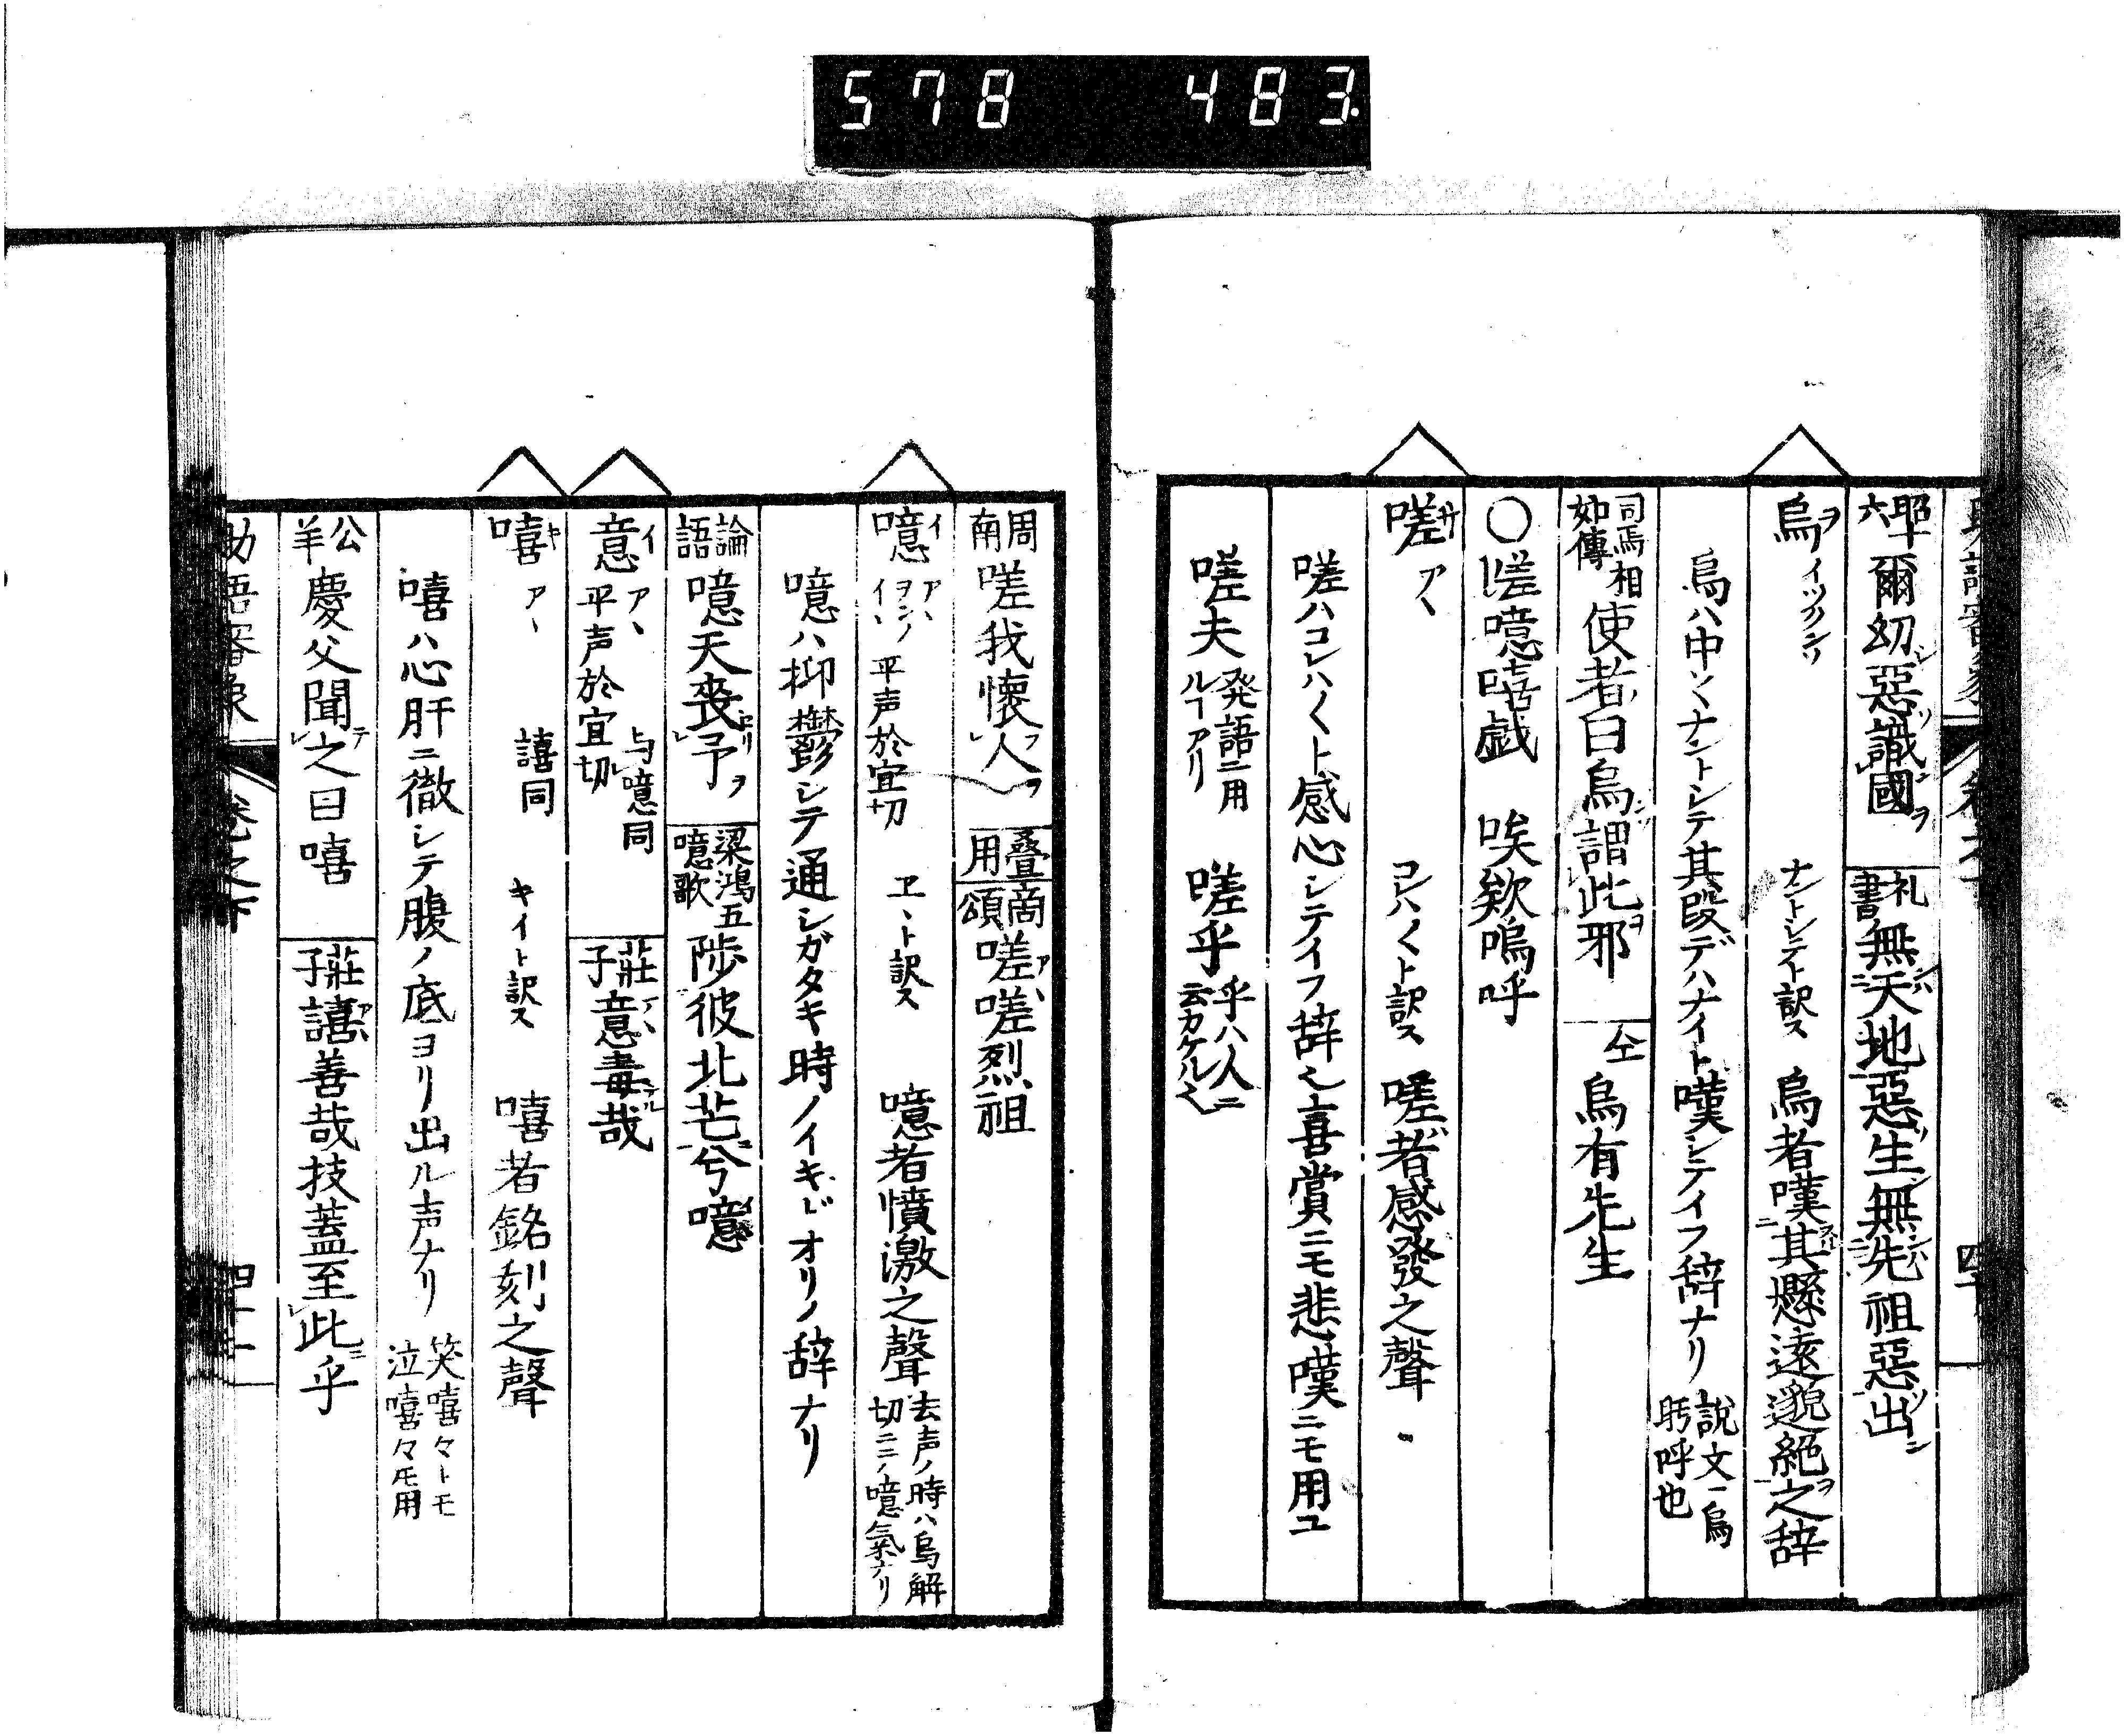 578 483.
昭十六 爾幼惡識國 礼書 無天地惡生無先祖惡出
烏 イツクンソ ナントシテト訳ス 烏者嘆其懸遠邈絶之辞
烏ハ中々ナントシテ其段デハナイト嘆シテイフ辞ナリ 說文一烏盱呼也
司馬相如傳 使者曰烏謂此邪 仝 烏有先生
○嗟噫嘻戯 唉欸嗚呼
嗟 アヽ コレハ〱ト訳ス 嗟者感發之聲
嗟ハコレハ〱ト感心シテイフ辞也喜賞ニモ悲嘆ニモ用ユ
嗟夫 発語ニ用ルヿアリ 嗟乎 乎ハ人ニ云カケル也
周南 嗟我懷人 疊用 商頌 嗟嗟烈祖
噫 平声於宜切 ヱヽト訳ス 噫者憤激之聲 去声ノ時ハ烏解切ニ乄噫氣ナリ
噫ハ抑鬱シテ通シガタキ時ノイキドオリノ辞ナリ
論語 噫天喪予 梁鴻五噫歌 陟彼北芒兮噫
意 アヽ 平声於宜切 与噫同 莊子 意毒哉
嘻 アヽ 譆同 キイト訳ス 嘻者銘刻之聲
嘻ハ心肝ニ徹シテ腹ノ底ヨリ出ル声ナリ 笑嘻々トモ泣嘻々トモ用
公羊 慶父聞之曰嘻 莊子 譆善哉技蓋至此乎
助語審象 卷之下 四十一